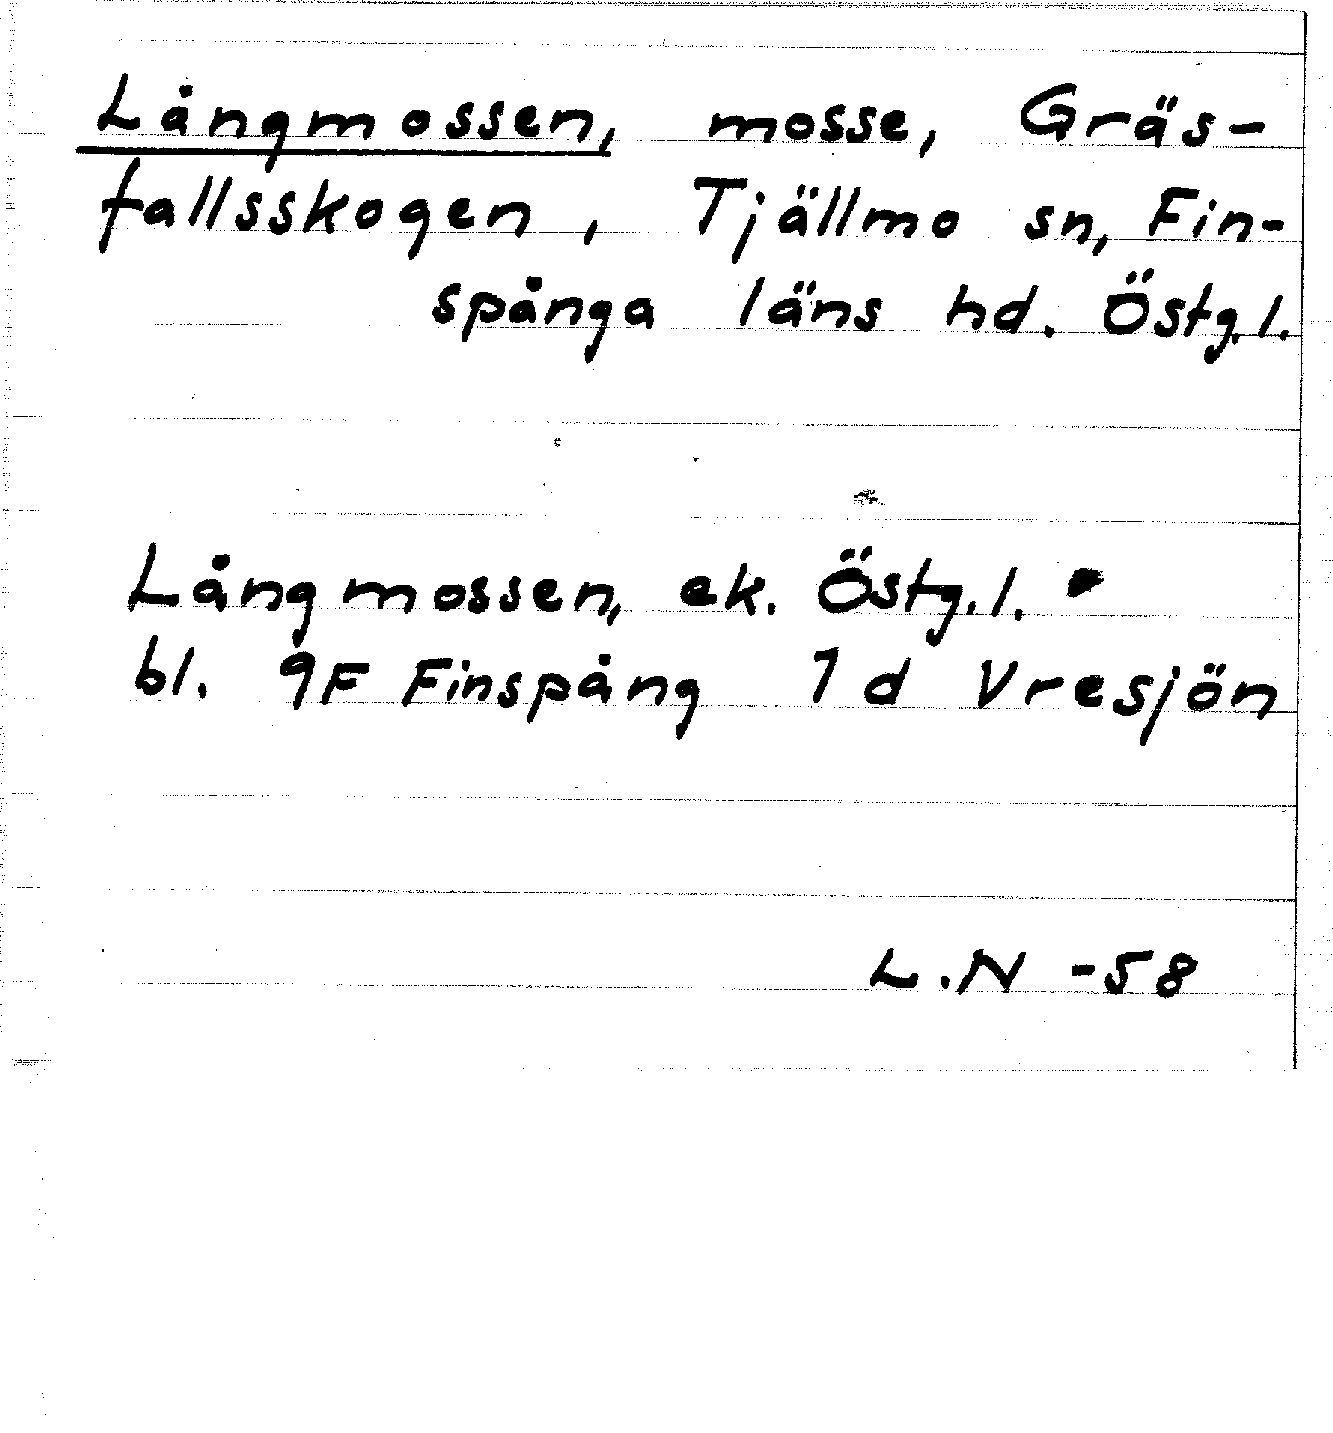 Långmossen, mosse, Gräs-
fallsskogen, Tjällmo sn, Fin-
spånga läns hd. Östg.l.
Långmossen, ek. Östg.l.
bl. 9F Finspång 1d Vresjön
L.N -58